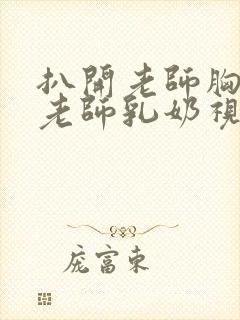 扒開老師胸
老師乳奶視
庞富東